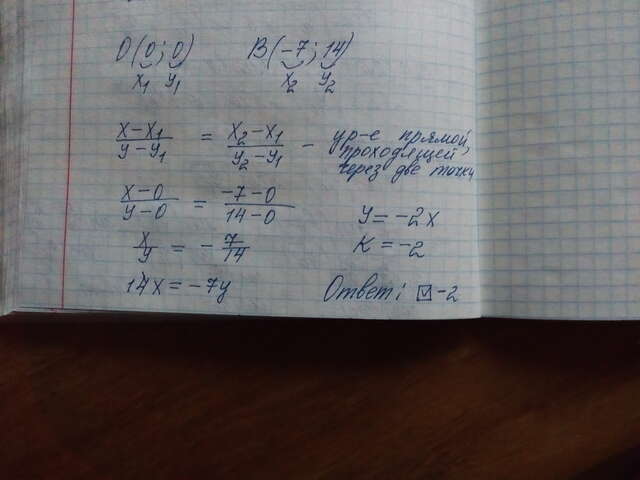 O(0; 0) B(-7; 14)
x₁ y₁ x₂ y₂
(x-x₁)/(y-y₁) = (x₂-x₁)/(y₂-y₁) - ур-е прямой,
проходящей
через две точки
(x-0)/(y-0) = (-7-0)/(14-0)
x/y = -7/14
14x = -7y
y = -2x
K = -2
Ответ: ☑ -2